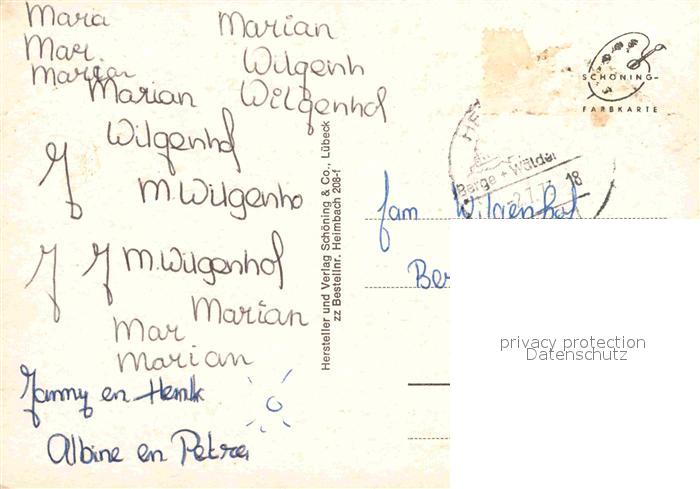 Mara
Mar
Marian
Marian
Wilgenh
Wilgenhof
Marian
Wilgenhof
M. Wilgenho
M. Wilgenhof
Marian
Mar
Marian
Janny en Henk
Albine en Petra
Hersteller und Verlag Schöning & Co., Lübeck
zz Bestellnr. Heimbach 208-f
SCHÖNING-
FARBKARTE
HE
Berge + Wälder
-2.7.73 18
fam Wilgenhof
Ber
privacy protection
Datenschutz